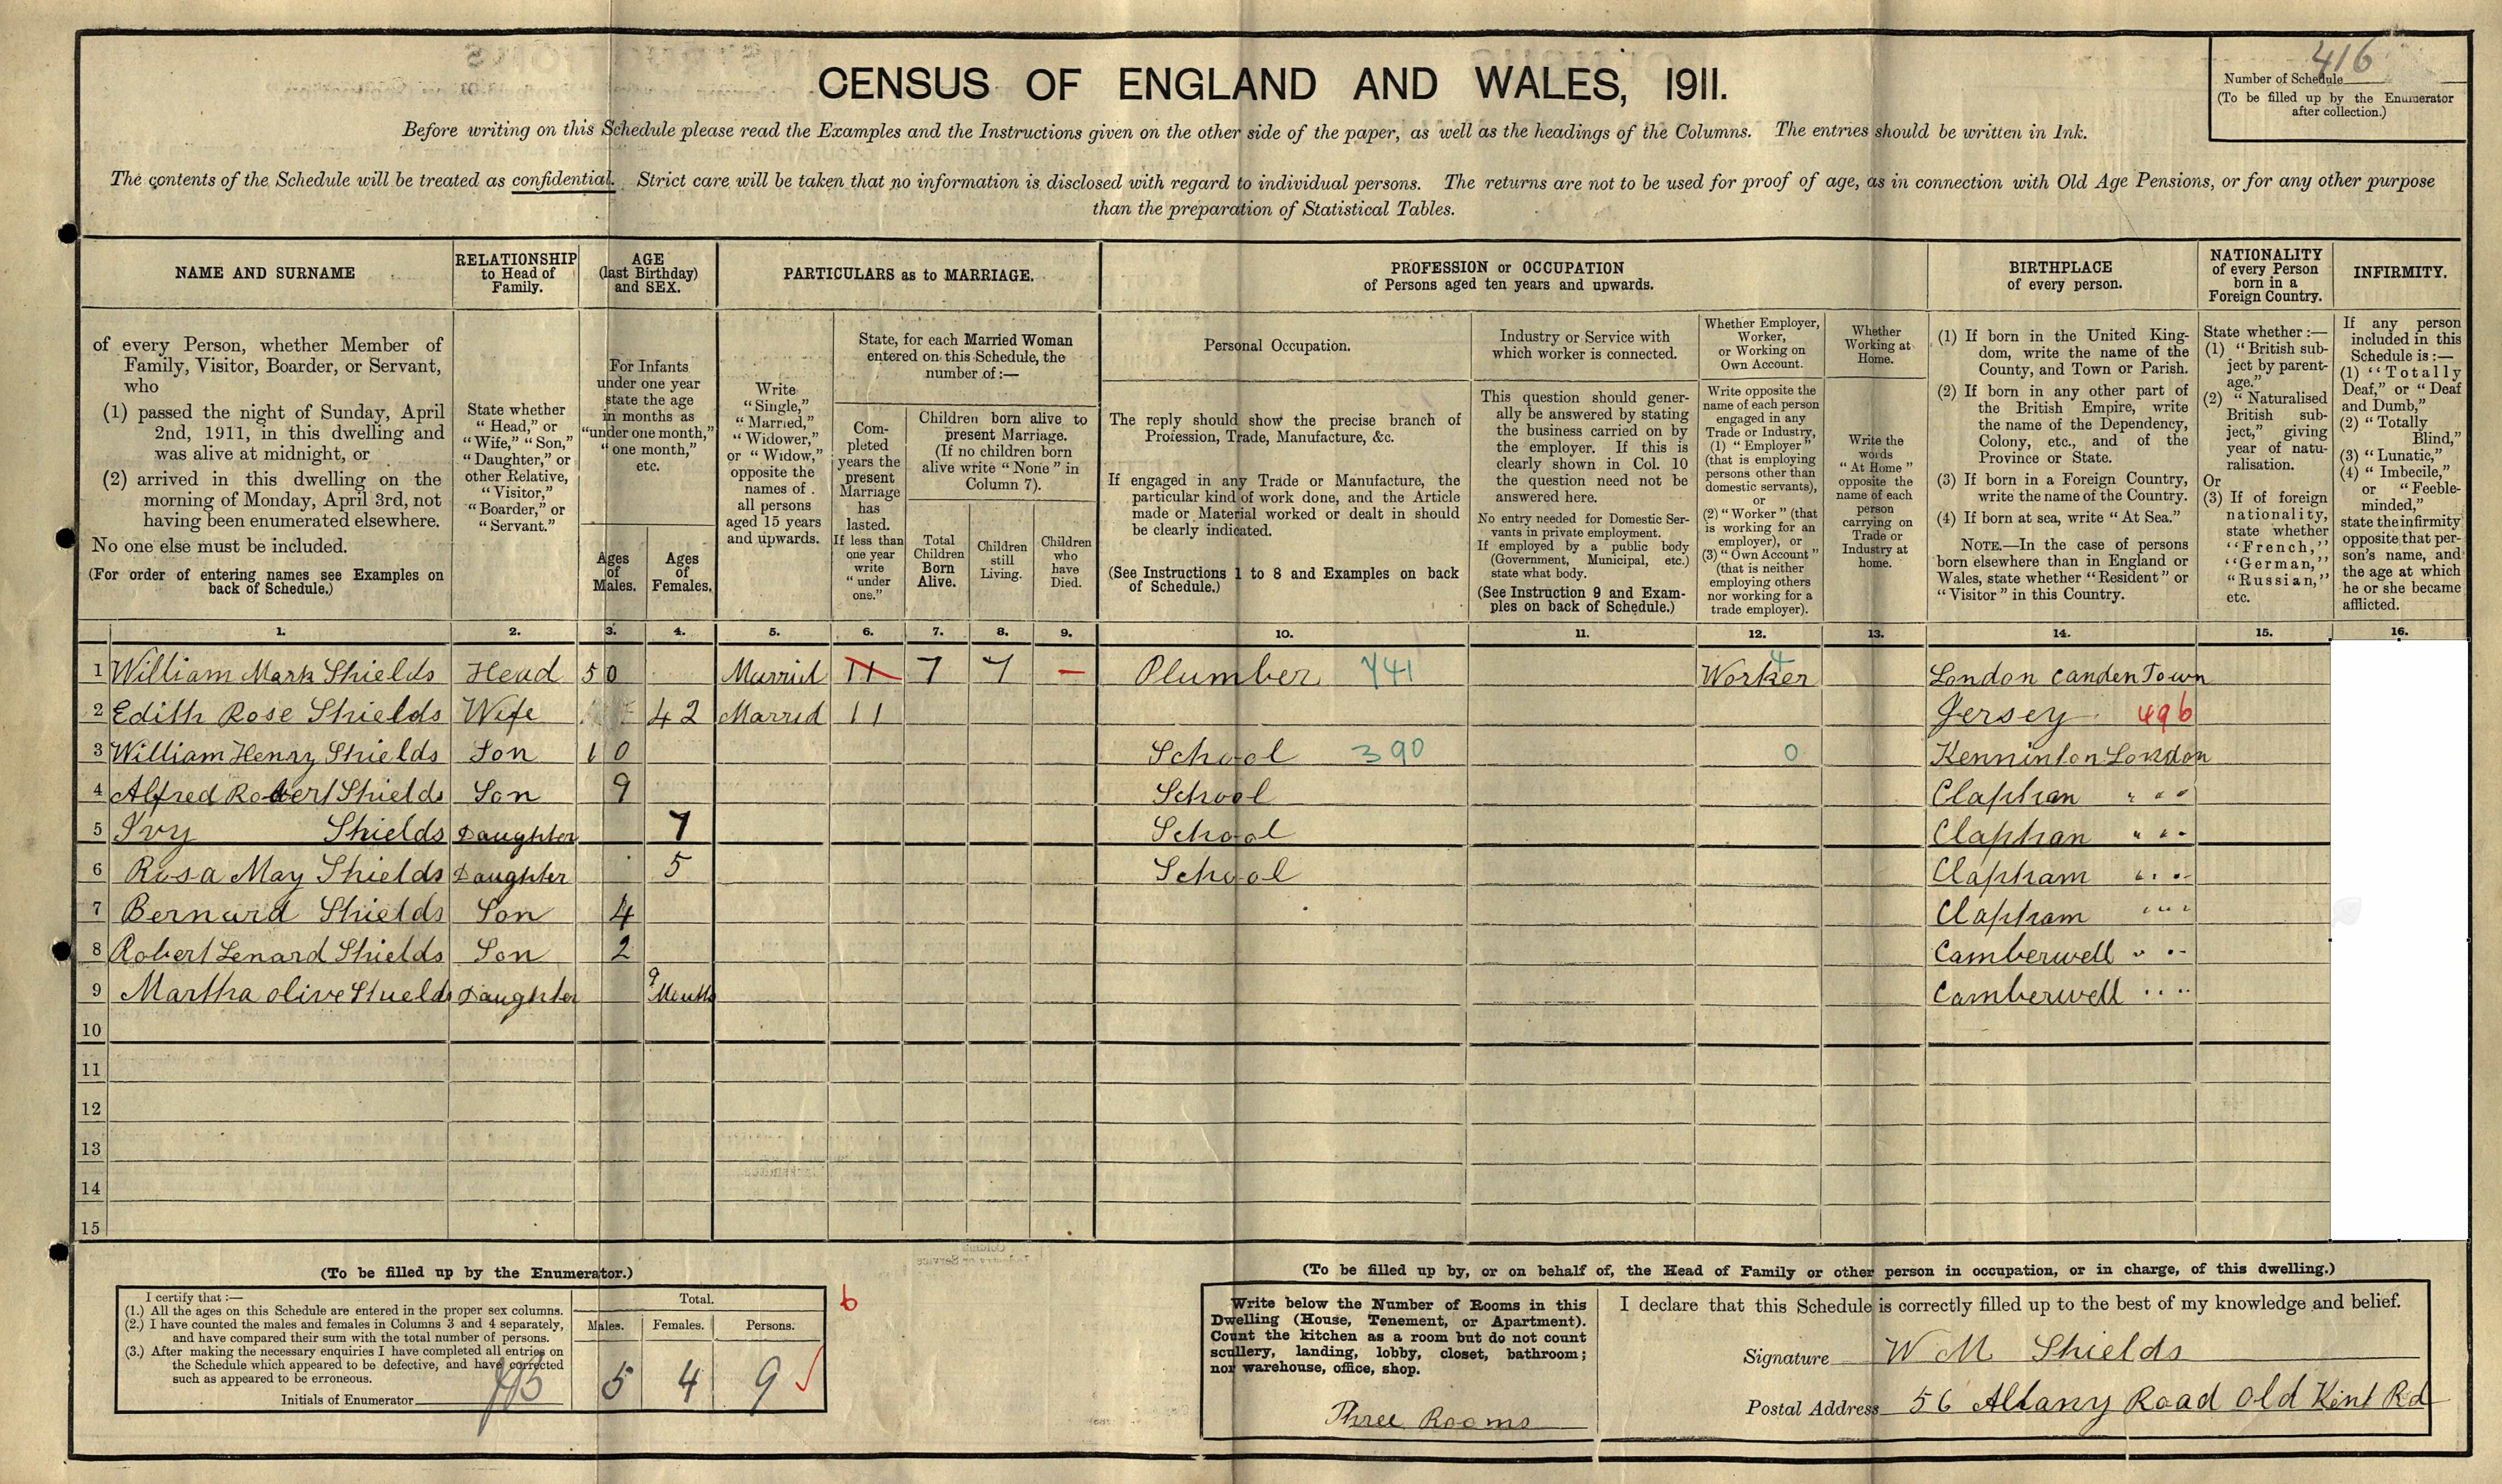 416
Number of Schedule
(To be filled up by the Enumerator
after collection.)
CENSUS OF ENGLAND AND WALES, 1911.
Before writing on this Schedule please read the Examples and the Instructions given on the other side of the paper, as well as the headings of the Columns. The entries should be written in Ink.
The contents of the Schedule will be treated as confidential. Strict care will be taken that no information is disclosed with regard to individual persons. The returns are not to be used for proof of age, as in connection with Old Age Pensions, or for any other purpose
than the preparation of Statistical Tables.
NAME AND SURNAME
of every Person, whether Member of
Family, Visitor, Boarder, or Servant,
who
(1) passed the night of Sunday, April
2nd, 1911, in this dwelling and
was alive at midnight, or
(2) arrived in this dwelling on the
morning of Monday, April 3rd, not
having been enumerated elsewhere.
No one else must be included.
(For order of entering names see Examples on
back of Schedule.)
RELATIONSHIP
to Head of
Family.
State whether
"Head," or
"Wife," "Son,"
"Daughter," or
other Relative,
"Visitor,"
"Boarder," or
"Servant."
AGE
(last Birthday)
and SEX.
For Infants
under one year
state the age
in months as
"under one month,"
"one month,"
etc.
Ages
of
Males.
Ages
of
Females.
PARTICULARS as to MARRIAGE.
Write
"Single,"
"Married,"
"Widower,"
or "Widow,"
opposite the
names of
all persons
aged 15 years
and upwards.
State, for each Married Woman
entered on this Schedule, the
number of:—
Com-
pleted
years the
present
Marriage
has
lasted.
If less than
one year
write
"under
one."
Children born alive to
present Marriage.
(If no children born
alive write "None" in
Column 7).
Total
Children
Born
Alive.
Children
still
Living.
Children
who
have
Died.
PROFESSION or OCCUPATION
of Persons aged ten years and upwards.
Personal Occupation.
The reply should show the precise branch of
Profession, Trade, Manufacture, &c.
If engaged in any Trade or Manufacture, the
particular kind of work done, and the Article
made or Material worked or dealt in should
be clearly indicated.
(See Instructions 1 to 8 and Examples on back
of Schedule.)
Industry or Service with
which worker is connected.
This question should gener-
ally be answered by stating
the business carried on by
the employer. If this is
clearly shown in Col. 10
the question need not be
answered here.
No entry needed for Domestic Ser-
vants in private employment.
If employed by a public body
(Government, Municipal, etc.)
state what body.
(See Instruction 9 and Exam-
ples on back of Schedule.)
Whether Employer,
Worker,
or Working on
Own Account.
Write opposite the
name of each person
engaged in any
Trade or Industry,
(1) "Employer"
(that is employing
persons other than
domestic servants),
or
(2) "Worker" (that
is working for an
employer), or
(3) "Own Account"
(that is neither
employing others
nor working for a
trade employer).
Whether
Working at
Home.
Write the
words
"At Home"
opposite the
name of each
person
carrying on
Trade or
Industry at
home.
BIRTHPLACE
of every person.
(1) If born in the United King-
dom, write the name of the
County, and Town or Parish.
(2) If born in any other part of
the British Empire, write
the name of the Dependency,
Colony, etc., and of the
Province or State.
(3) If born in a Foreign Country,
write the name of the Country.
(4) If born at sea, write "At Sea."
NOTE.—In the case of persons
born elsewhere than in England or
Wales, state whether "Resident" or
"Visitor" in this Country.
NATIONALITY
of every Person
born in a
Foreign Country.
State whether:—
(1) "British sub-
ject by parent-
age."
(2) "Naturalised
British sub-
ject," giving
year of natu-
ralisation.
Or
(3) If of foreign
nationality,
state whether
"French,"
"German,"
"Russian,"
etc.
INFIRMITY.
If any person
included in this
Schedule is:—
(1) "Totally
Deaf," or "Deaf
and Dumb,"
(2) "Totally
Blind,"
(3) "Lunatic,"
(4) "Imbecile,"
or "Feeble-
minded,"
state the infirmity
opposite that per-
son's name, and
the age at which
he or she became
afflicted.
1. 2. 3. 4. 5. 6. 7. 8. 9. 10. 11. 12. 13. 14. 15. 16.
1 William Mark Shields Head 50 Married 11 7 7 — Plumber 741 Worker 4 London Camden Town
2 Edith Rose Shields Wife 42 Married 11 Jersey 496
3 William Henry Shields Son 10 School 390 0 Kenninton London
4 Alfred Robert Shields Son 9 School Clapham " " "
5 Ivy Shields Daughter 7 School Clapham " " "
6 Rosa May Shields Daughter 5 School Clapham " " "
7 Bernard Shields Son 4 Clapham " " "
8 Robert Lenard Shields Son 2 Camberwell " " "
9 Martha olive Shields Daughter 9 Months Camberwell " " "
10
11
12
13
14
15
(To be filled up by the Enumerator.)
I certify that:—
(1.) All the ages on this Schedule are entered in the proper sex columns.
(2.) I have counted the males and females in Columns 3 and 4 separately,
and have compared their sum with the total number of persons.
(3.) After making the necessary enquiries I have completed all entries on
the Schedule which appeared to be defective, and have corrected
such as appeared to be erroneous.
Initials of Enumerator
Total.
Males. Females. Persons.
5 4 9
6
(To be filled up by, or on behalf of, the Head of Family or other person in occupation, or in charge, of this dwelling.)
Write below the Number of Rooms in this
Dwelling (House, Tenement, or Apartment).
Count the kitchen as a room but do not count
scullery, landing, lobby, closet, bathroom;
nor warehouse, office, shop.
Three Rooms
I declare that this Schedule is correctly filled up to the best of my knowledge and belief.
Signature W M Shields
Postal Address 56 Albany Road Old Kent Rd